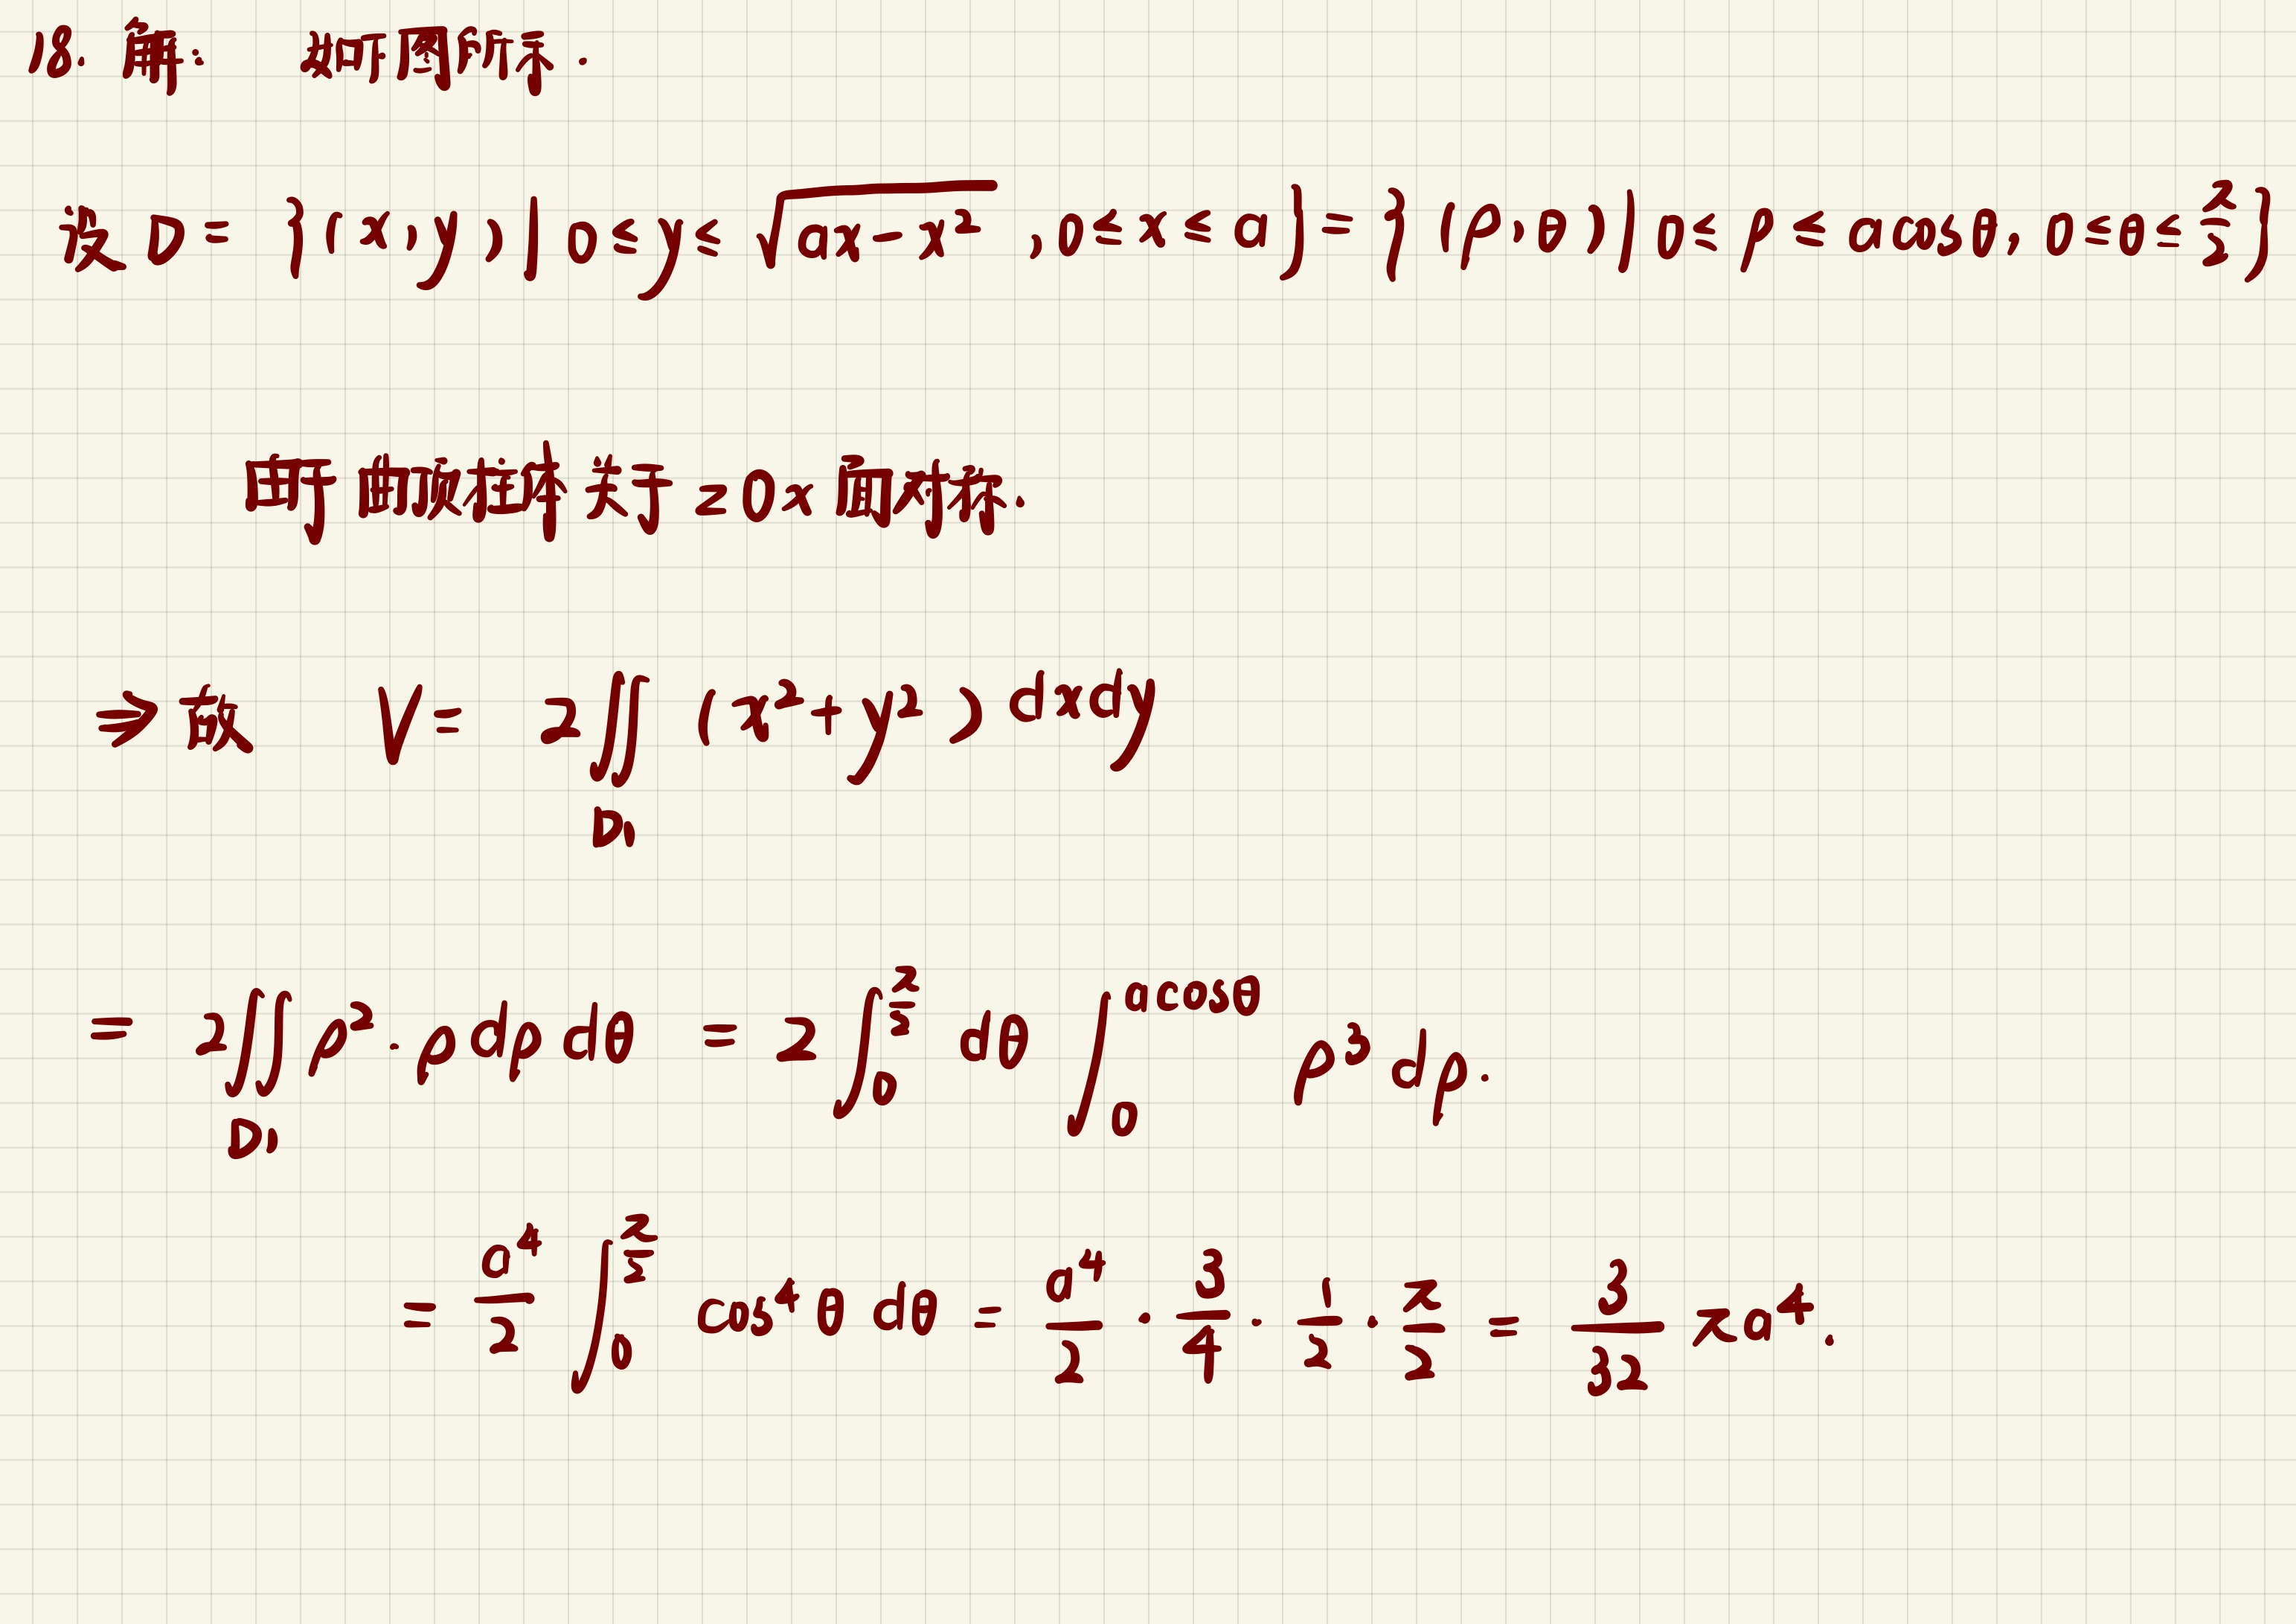 18. 解: 如下图所示.
设 D = {(x,y) | 0≤y≤√(ax-x²), 0≤x≤a} = {(ρ,θ) | 0≤ρ≤acosθ, 0≤θ≤π/2}
由于曲顶柱体关于zOx面对称.
⇒ 故 V = 2∬_{D₁} (x²+y²) dxdy
= 2∬_{D₁} ρ²·ρ dρ dθ = 2∫_0^{π/2} dθ ∫_0^{acosθ} ρ³ dρ.
= a⁴/2 ∫_0^{π/2} cos⁴θ dθ = a⁴/2 · 3/4 · 1/2 · π/2 = 3/32 πa⁴.